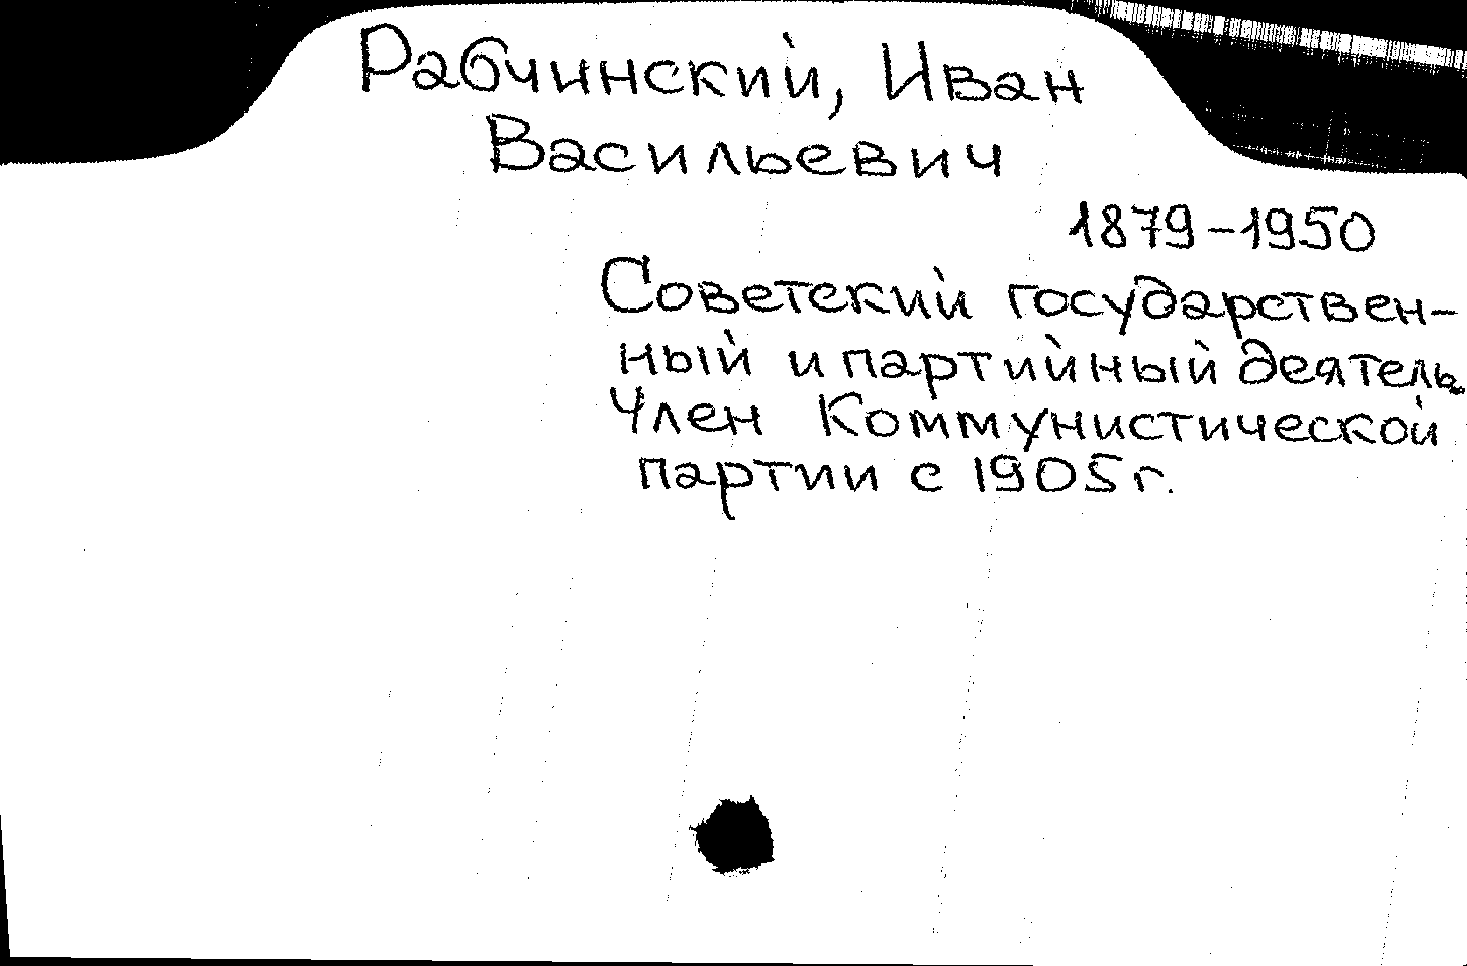 Рабчинский, Иван
Васильевич
1879-1950
Советский государствен-
ный и партийный деятель.
Член Коммунистической
партии с 1905 г.